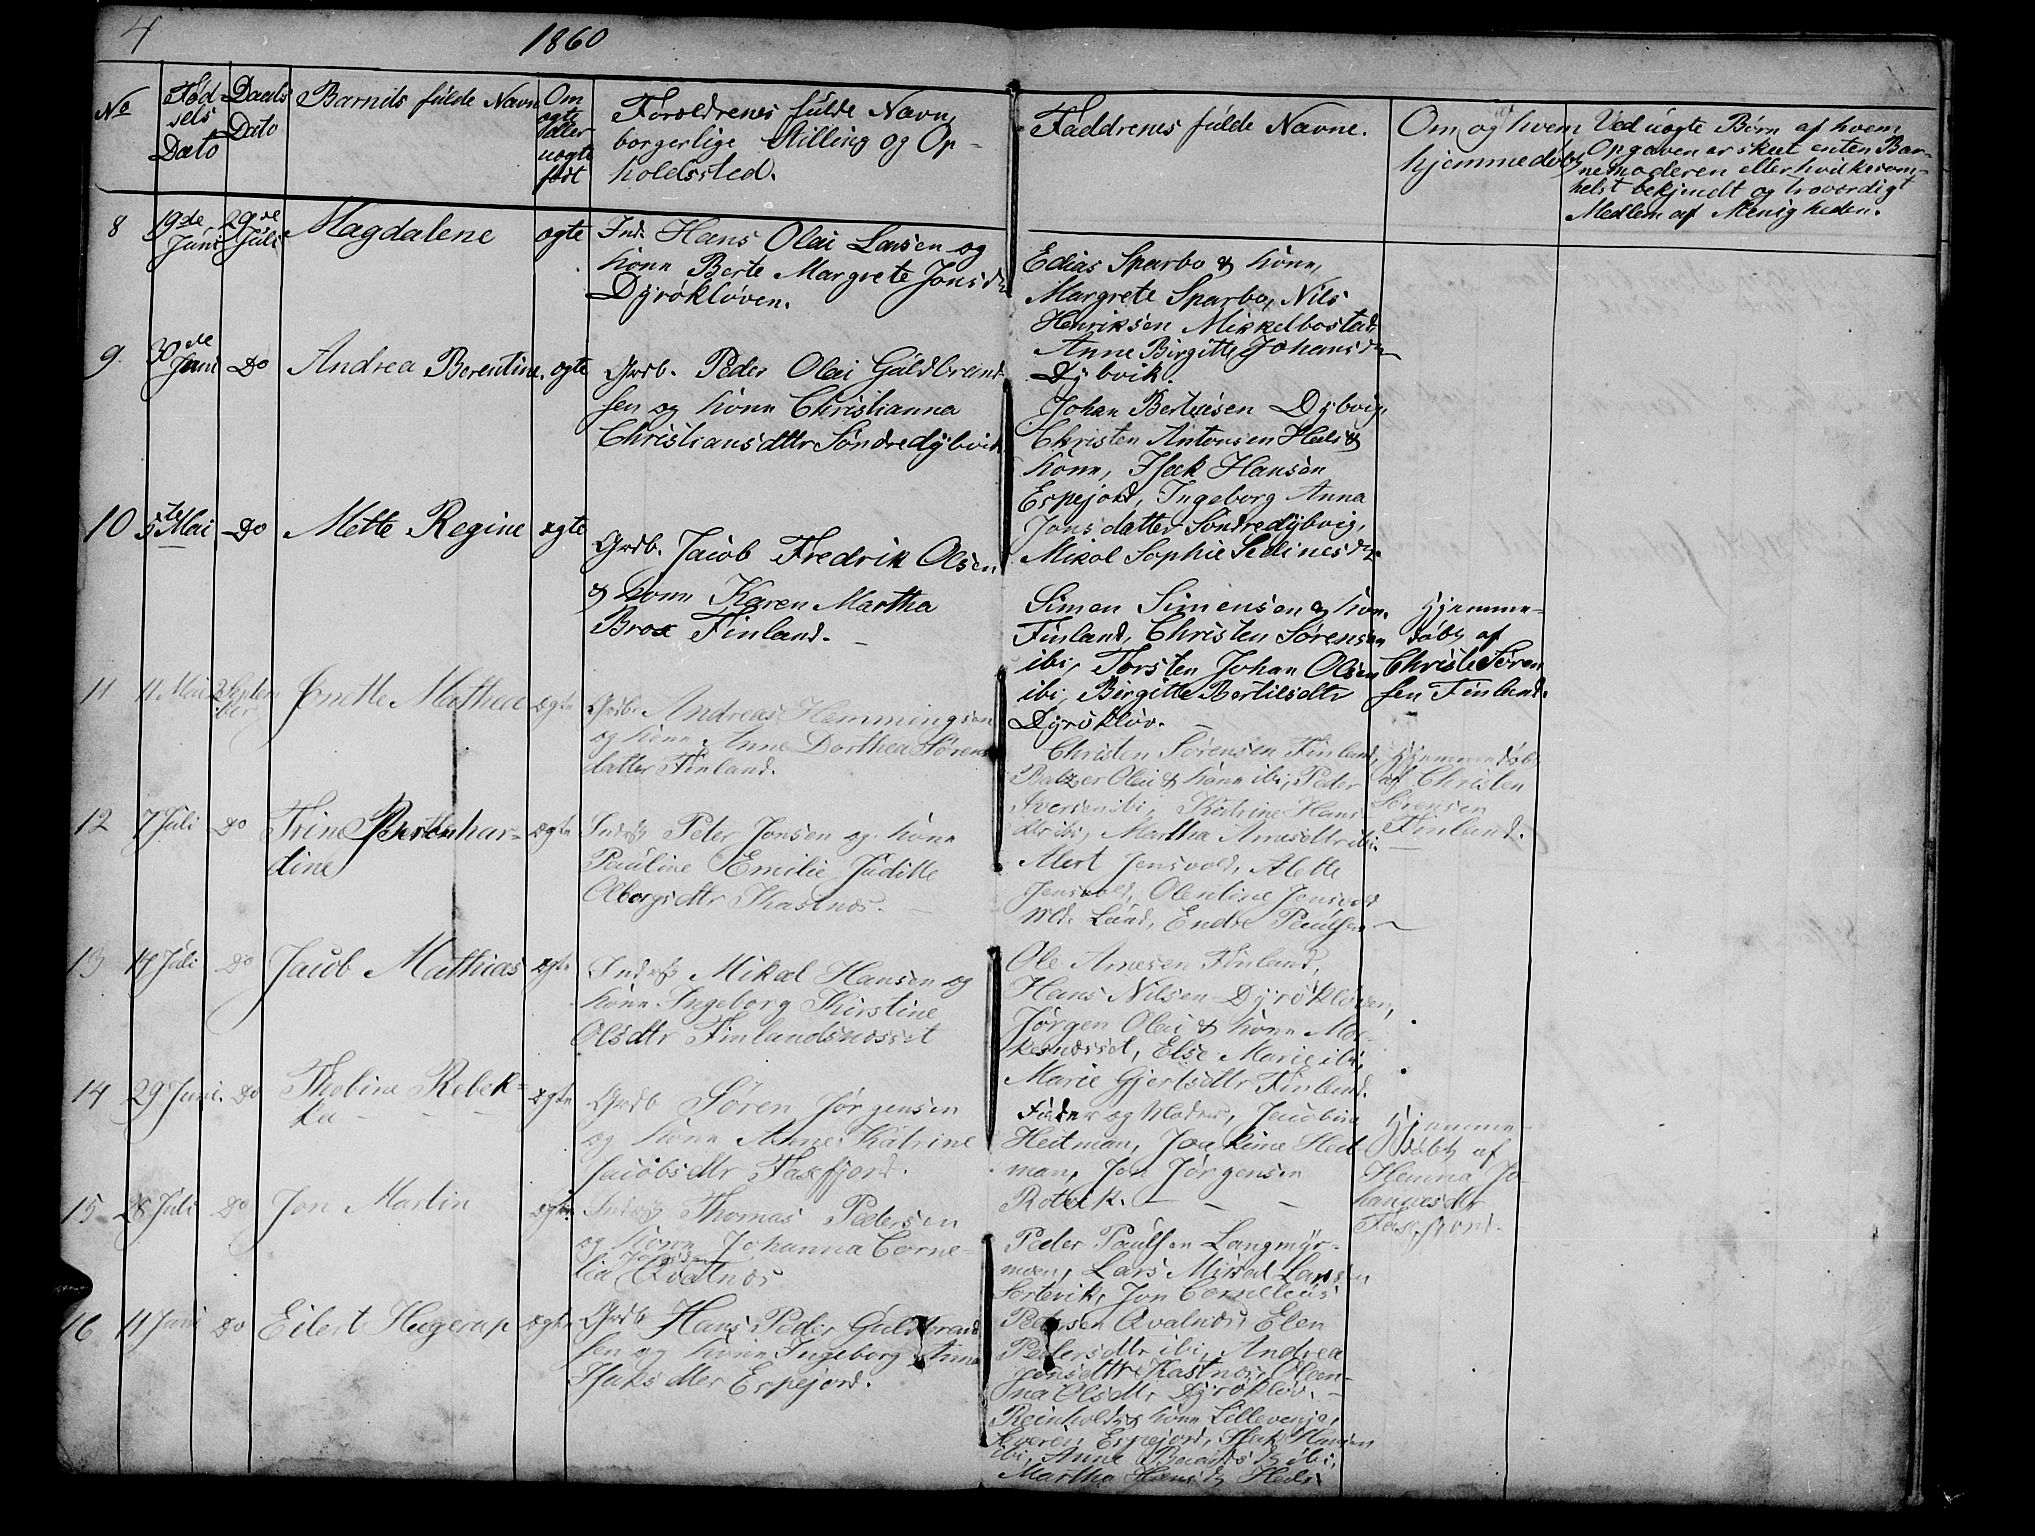 4
1860
No
Fød
sels
Dato
Daabs
Dato
Barnets fulde Navn
Om
ægte
eller
uægte
født
Forældrenes fulde Navn,
borgerlige Stilling og Op-
holdssted.
Faddrenes fulde Navne.
Om og af hvem
hjemmedøbt
Ved uægte Børn af hvem
Opgaven er skeet enten Bar-
nemoderen eller hvilkesom-
helst bekjendt og troværdigt
Medlem af Menigheden.
8
19de
Juni
29de
Juli
Magdalene
ægte
Ind. Hans Olai Larsen og
kone Berte Margrete Jonsdr
Dyrøkløven.
Edias Sparbo & kone,
Margrete Sparbo, Nils
Henriksen Mikkelbostad,
Anne Birgitte Johansdr
Dybvik.
9.
30de
Juni
Do
Andrea Berentine.
ægte
Grdb. Peder Olai Guldbrand
sen og kone Christianna
Christiansdttr Søndredybvik
Johan Berteisen Dybvig,
Christen Antonsen Hals &
kone, Isak Hansen
Espejord, Ingeborg Anna
Jonsdatter Søndredybvig,
Mikol Sophie Sedinesdr.
10
5te Mai
Do
Mette Regine
ægte
Grdb. Jacob Fredrik Olsen
& kone Karen Martha
Brox Finland. -
Simon Simensen & kone
Finland, Christen Sørensen
ibi, Torsten Johan Olsen
ibi, Birgitte Bertilsdtr
Dyrøkløv. -
Hjemme-
døbt af
Christe Søren
sen Finland.
11
11 Mai
2 Septem
ber
Jonette Mathea
ægte
Grdb. Andreas Hemmingsen
og kone Anne Dorthea Sørens
datter Finland.
Christen Sørensen Finland,
Balzer Olai & kone ibi, Peder
Iversen ibi, Katrine Hans
dtr ibi, Martha Arnesdtr ibi.
Hjemmedøbt
af Christen
Sørensen
Finland.
12
7 Juli
Do
Trine Bernhar-
dine
ægte
Inds Peter Jonsen og kone
Pauline Emilie Juditte
Olborgsdtr Kastnæs. -
Alert Jensvold, Alette
Jensvold, Olentine Jensvold
Md. Lund, Endre Paulsen
13
14 Juli
Do
Jacob Mathias
ægte
Inds Mikal Hansen og
kone Ingeborg Kirstine
Olsdtr Finlandsnæsset
Ole Arnesen Finland,
Hans Nilsen Dyrøkløven,
Jørgen Olai & kone Mo-
kesnæsset, Else Marie ibi,
Marie Gjertsdtr Finland.
14
29 Juni.
Do
Tholine Rebek-
ka - - -
ægte
Grdb Søren Jørgensen
og kone Anne Katrine
Jacobsdtr Faxfjord.
Fader og Moder, Jacobine
Heitman, Joakima Heit
man, Jon Jørgensen
Rotvik. - - -
Hjemme-
døbt af
Hanna Jo-
hannesdtr
Faxfjord.
15
28 Juli
Do
Jon Martin
ægte
Inds Thomas Pedersen
og kone Johanna Corne-
lia Jonsdr Qvalnæs
Peder Paulsen Langmyr-
moen, Lars Mikal Larsen
Sørlevik, Jon Cornelius
Pedersen Qvalnæs, Elen
Pedersdtr ibi, Andrea
Jensdtr Kastnæs, Olean-
na Olsdtr Dyrøkløv. -
16
11 Juni
Do
Eilert Hagerup
ægte
Grdb Hans Peder Guldbrand
sen og kone Ingeborg Anna
Isaksdtter Espejord.
Reinhold & kone Lillevenje,
Severin Espejord, Isak Hansen
ibi, Anne ibi,
Martha Hansdr Hals.